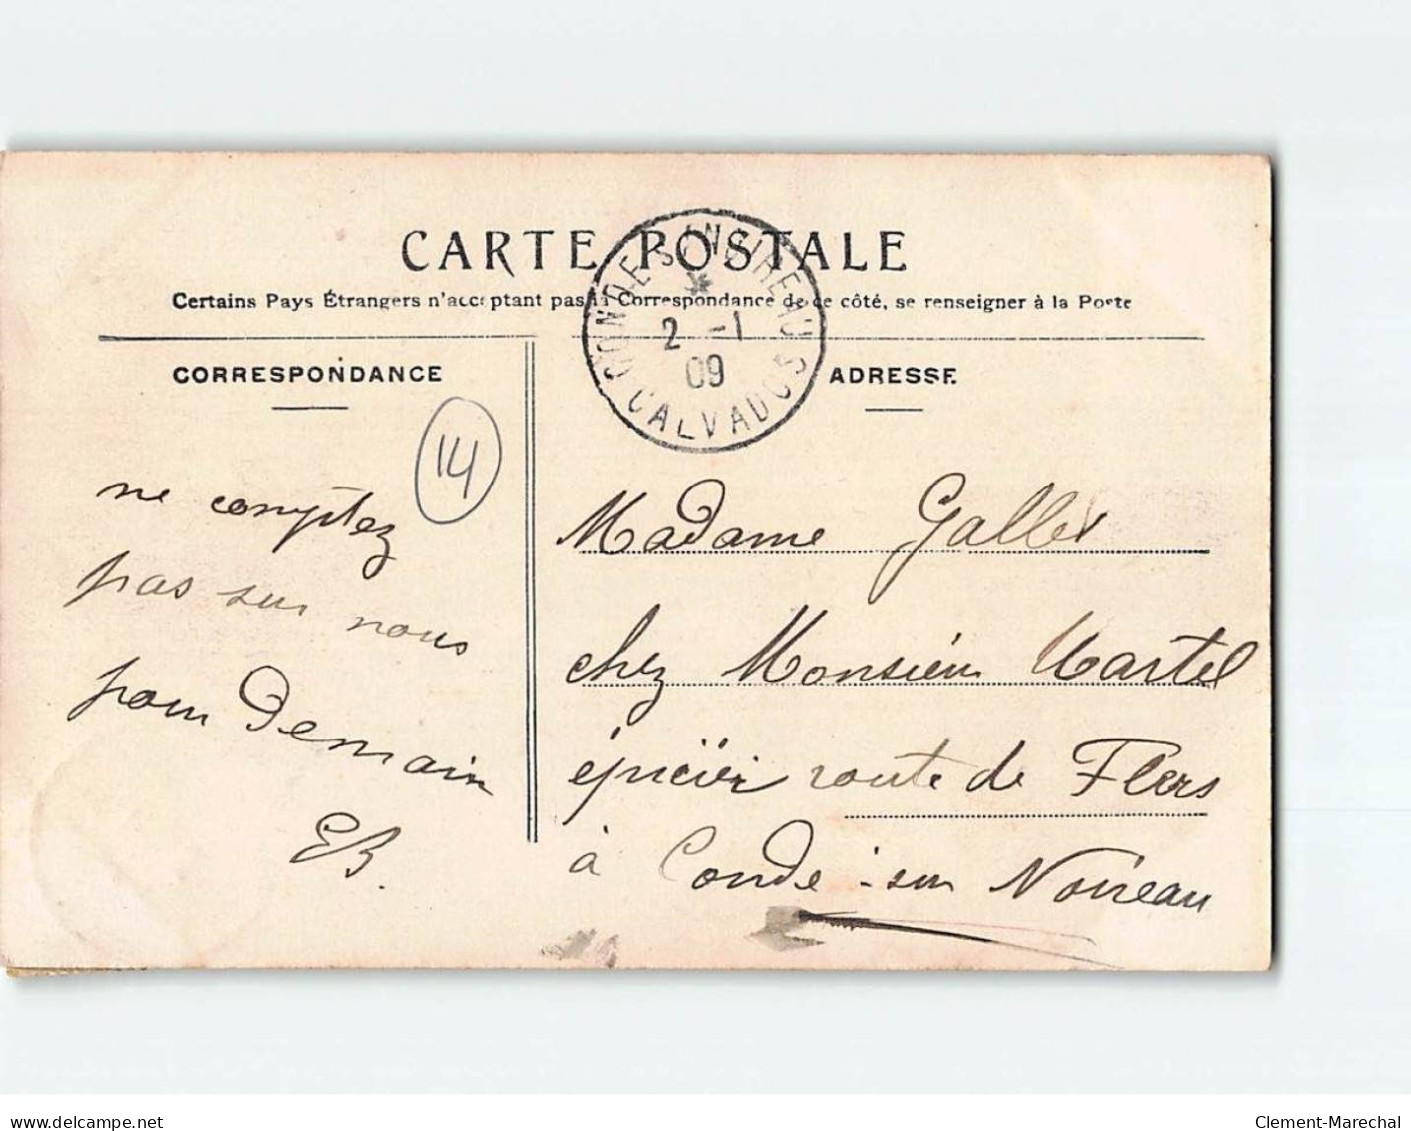 CARTE POSTALE
Certains Pays Étrangers n'acceptant pas la Correspondance de ce côté, se renseigner à la Poste
CONDE S/ NOIREAU
2 -1
09
CALVADOS
CORRESPONDANCE
14
ne comptez
pas sur nous
pour Demain
EB.
ADRESSE
Madame Galles
chez Monsieur Martel
épicier route de Flers
à Condé-sur Noireau
www.delcampe.net
Clement-Marechal